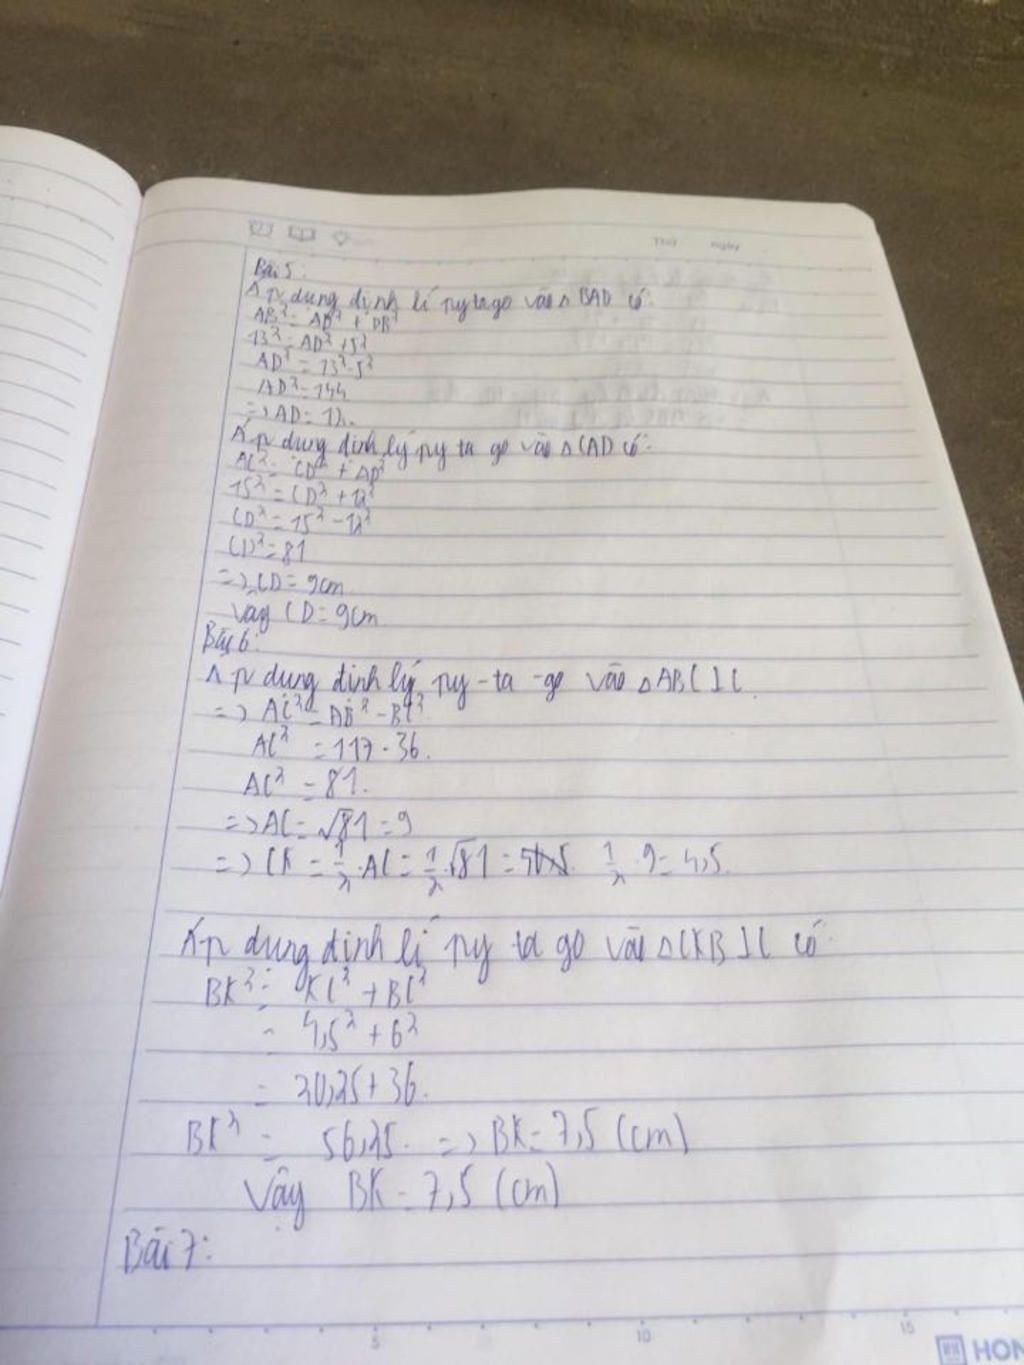 Thứ ngày
Bài 5:
Áp dụng định lí pytago vào △ BAD có:
AB² = AD² + DB²
13² = AD² + 5²
AD² = 13² - 5²
AD² = 144
=> AD = 12.
Áp dụng định lý py ta go vào △ CAD có:
AC² = CD² + AD²
15² = CD² + 12²
CD² = 15² - 12²
CD² = 81
=> CD = 9cm
Vậy CD = 9cm
Bài 6:
Áp dụng định lý py-ta-go vào △ABC ⊥ C
=> AC² = AB² - BC²
AC² = 117 - 36.
AC² = 81.
=> AC = √81 = 9
=> CK = 1/2 . AC = 1/2 . √81 = 1/2 . 9 = 4,5.
Áp dụng định lí py ta go vào △CKB ⊥ C có
BK² = KC² + BC²
= 4,5² + 6²
= 20,25 + 36.
BK² = 56,25. => BK = 7,5 (cm)
Vậy BK = 7,5 (cm)
Bài 7:
5 10 15
HON